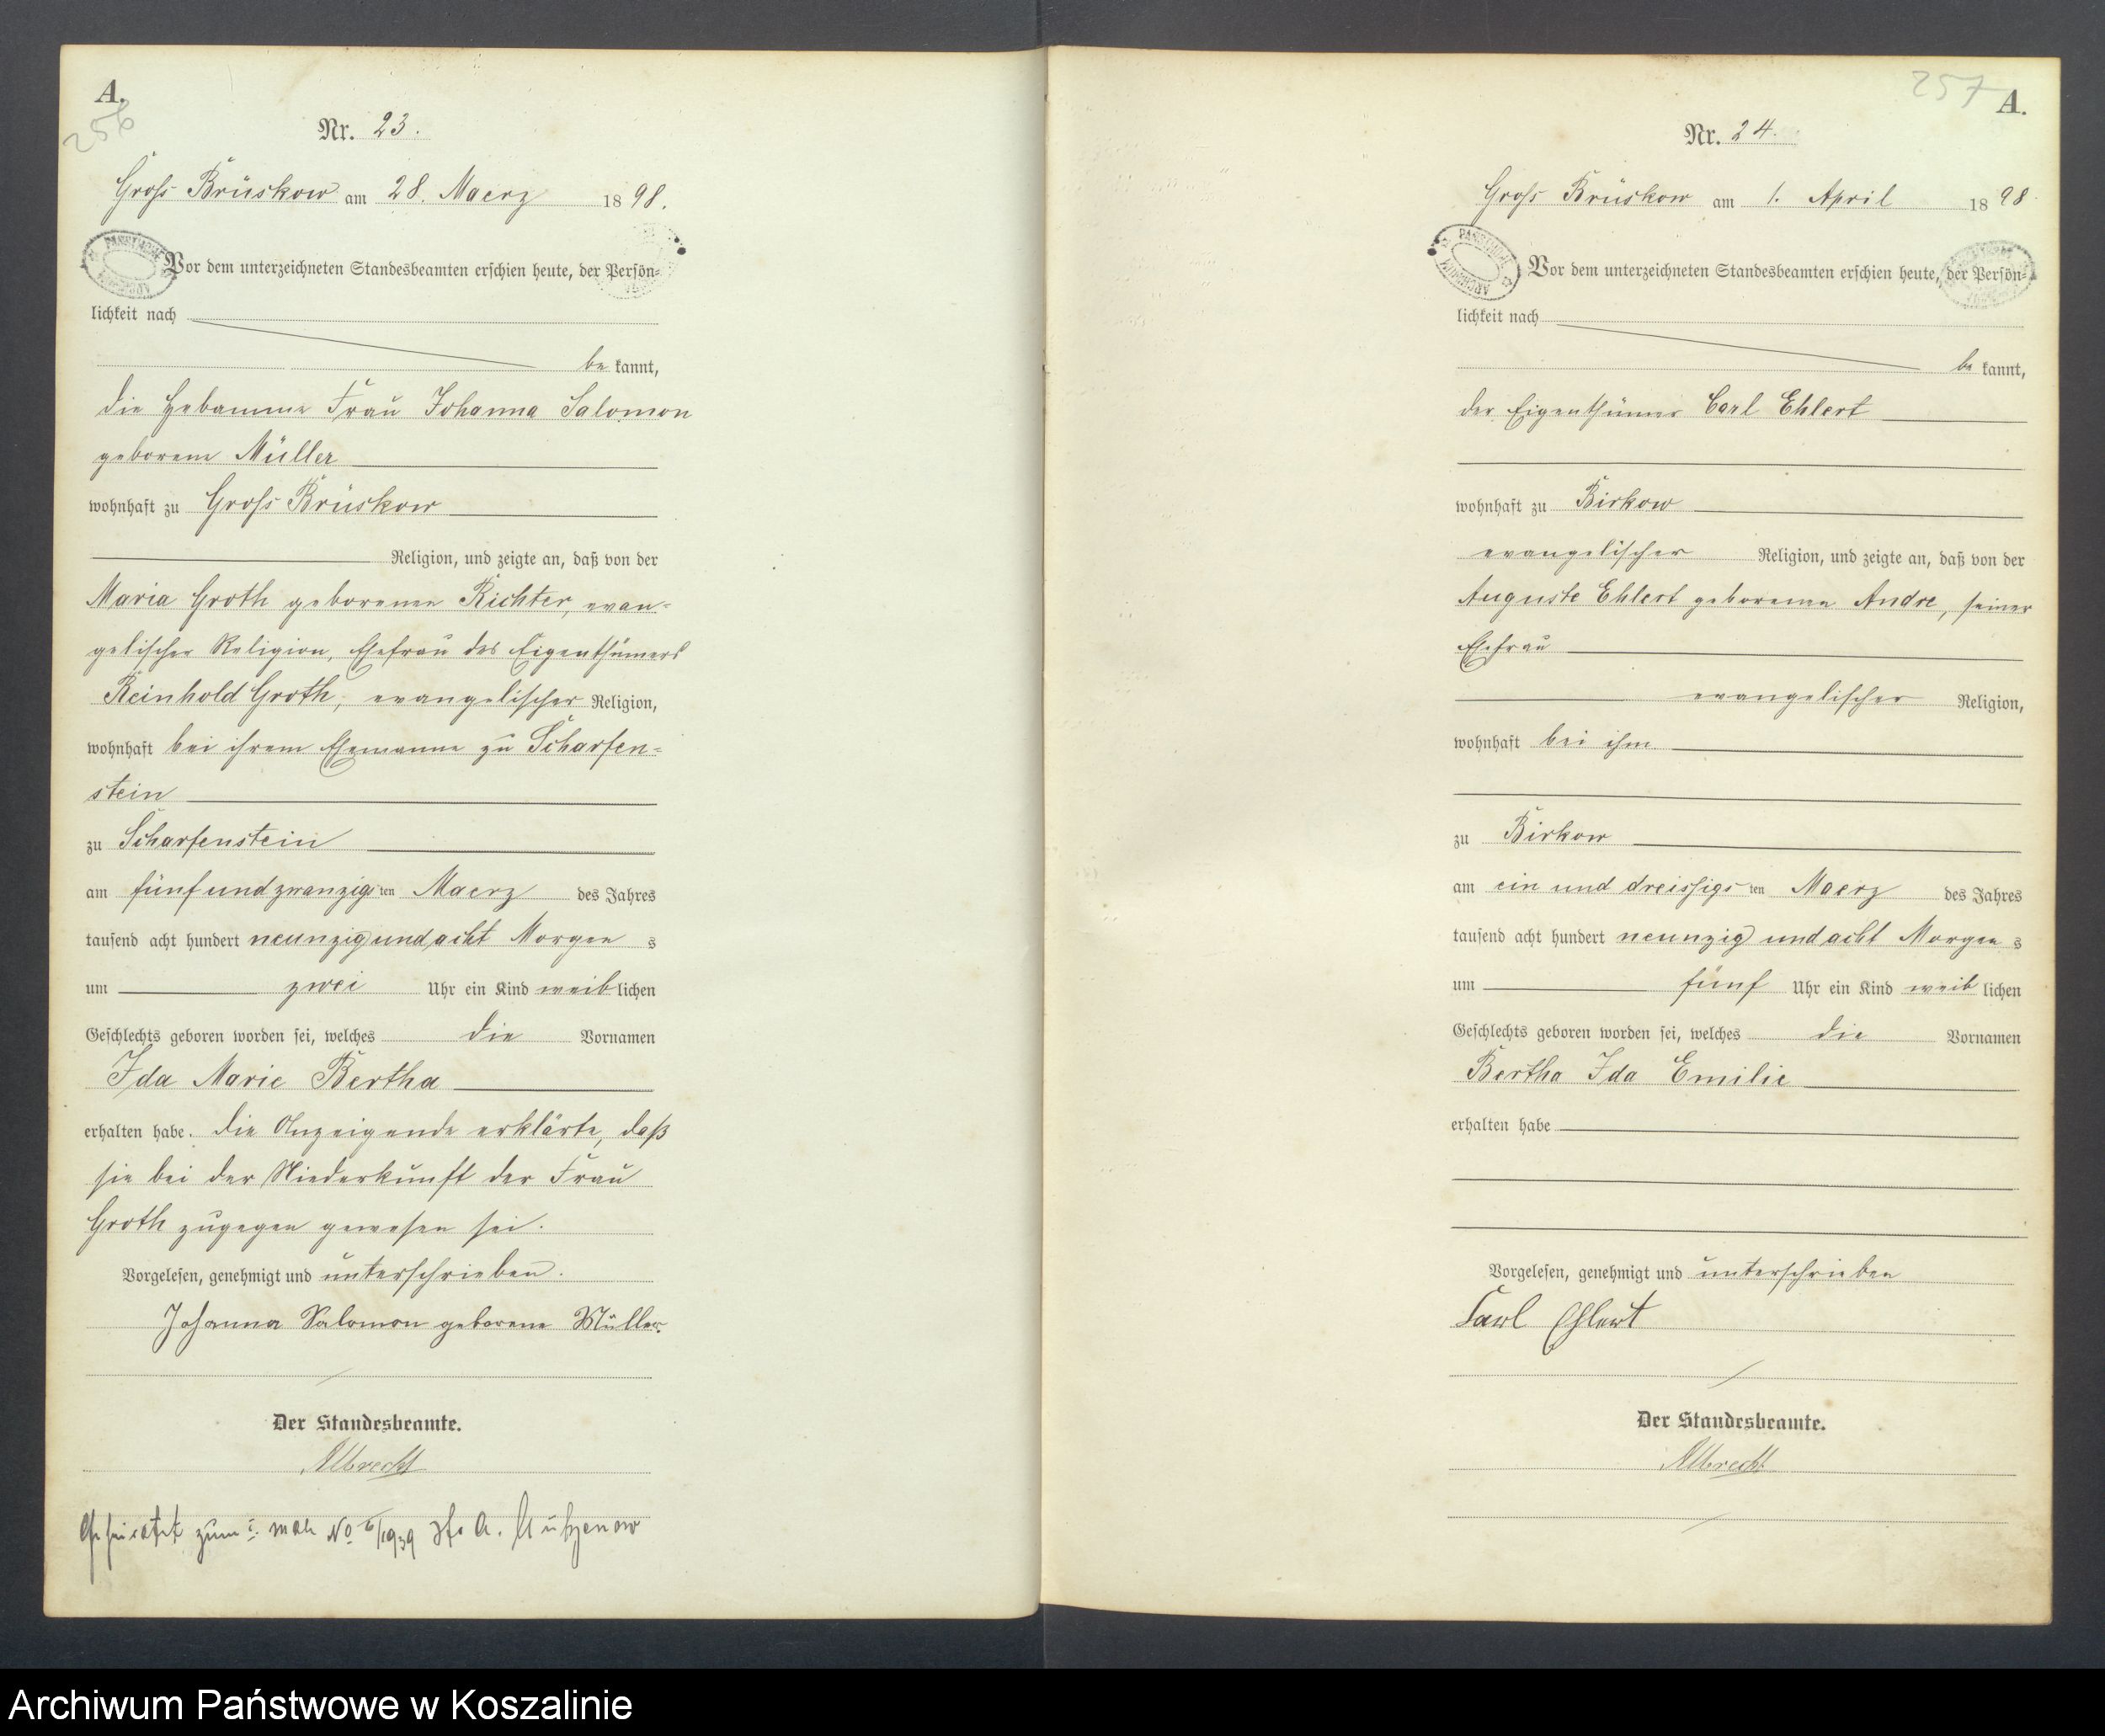 A.
256
Nr. 23.
Gross Brüskow am 28. Maerz 1898.
Vor dem unterzeichneten Standesbeamten erschien heute, der Persön-
lichkeit nach
be kannt,
die Hebamme Frau Johanna Salomon
geborene Müller
wohnhaft zu Gross Brüskow
Religion, und zeigte an, daß von der
Maria Groth geborenen Richter, evan-
gelischer Religion, Ehefrau des Eigenthümers
Reinhold Groth, evangelischer Religion,
wohnhaft bei ihrem Ehemanne zu Scharfen-
stein
zu Scharfenstein
am fünfundzwanzigsten Maerz des Jahres
tausend acht hundert neunzig und acht Morgens
um zwei Uhr ein Kind weiblichen
Geschlechts geboren worden sei, welches die Vornamen
Ida Marie Bertha
erhalten habe. Die Anzeigende erklärte, daß
sie bei der Niederkunft der Frau
Groth zugegen gewesen sei.
Vorgelesen, genehmigt und unterschrieben.
Johanna Salomon geborene Müller.
Der Standesbeamte.
Albrecht
Geheiratet zum I. mal No 6/1939 Sta. A. Mützenow
257
A.
Nr. 24.
Gross Brüskow am 1. April 1898
Vor dem unterzeichneten Standesbeamten erschien heute, der Persön-
lichkeit nach
be kannt,
der Eigenthümer Carl Ehlert
wohnhaft zu Birkow
evangelischer Religion, und zeigte an, daß von der
Auguste Ehlert geborenen Andre, seiner
Ehefrau
evangelischer Religion,
wohnhaft bei ihm
zu Birkow
am ein und dreissigsten Maerz des Jahres
tausend acht hundert neunzig und acht Morgens
um fünf Uhr ein Kind weiblichen
Geschlechts geboren worden sei, welches die Vornamen
Bertha Ida Emilie
erhalten habe
Vorgelesen, genehmigt und unterschrieben
Carl Ehlert
Der Standesbeamte.
Albrecht
Archiwum Państwowe w Koszalinie